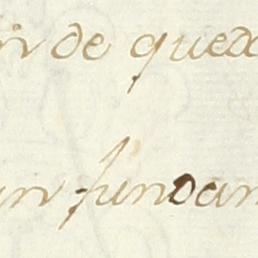 in de queda
an fundam